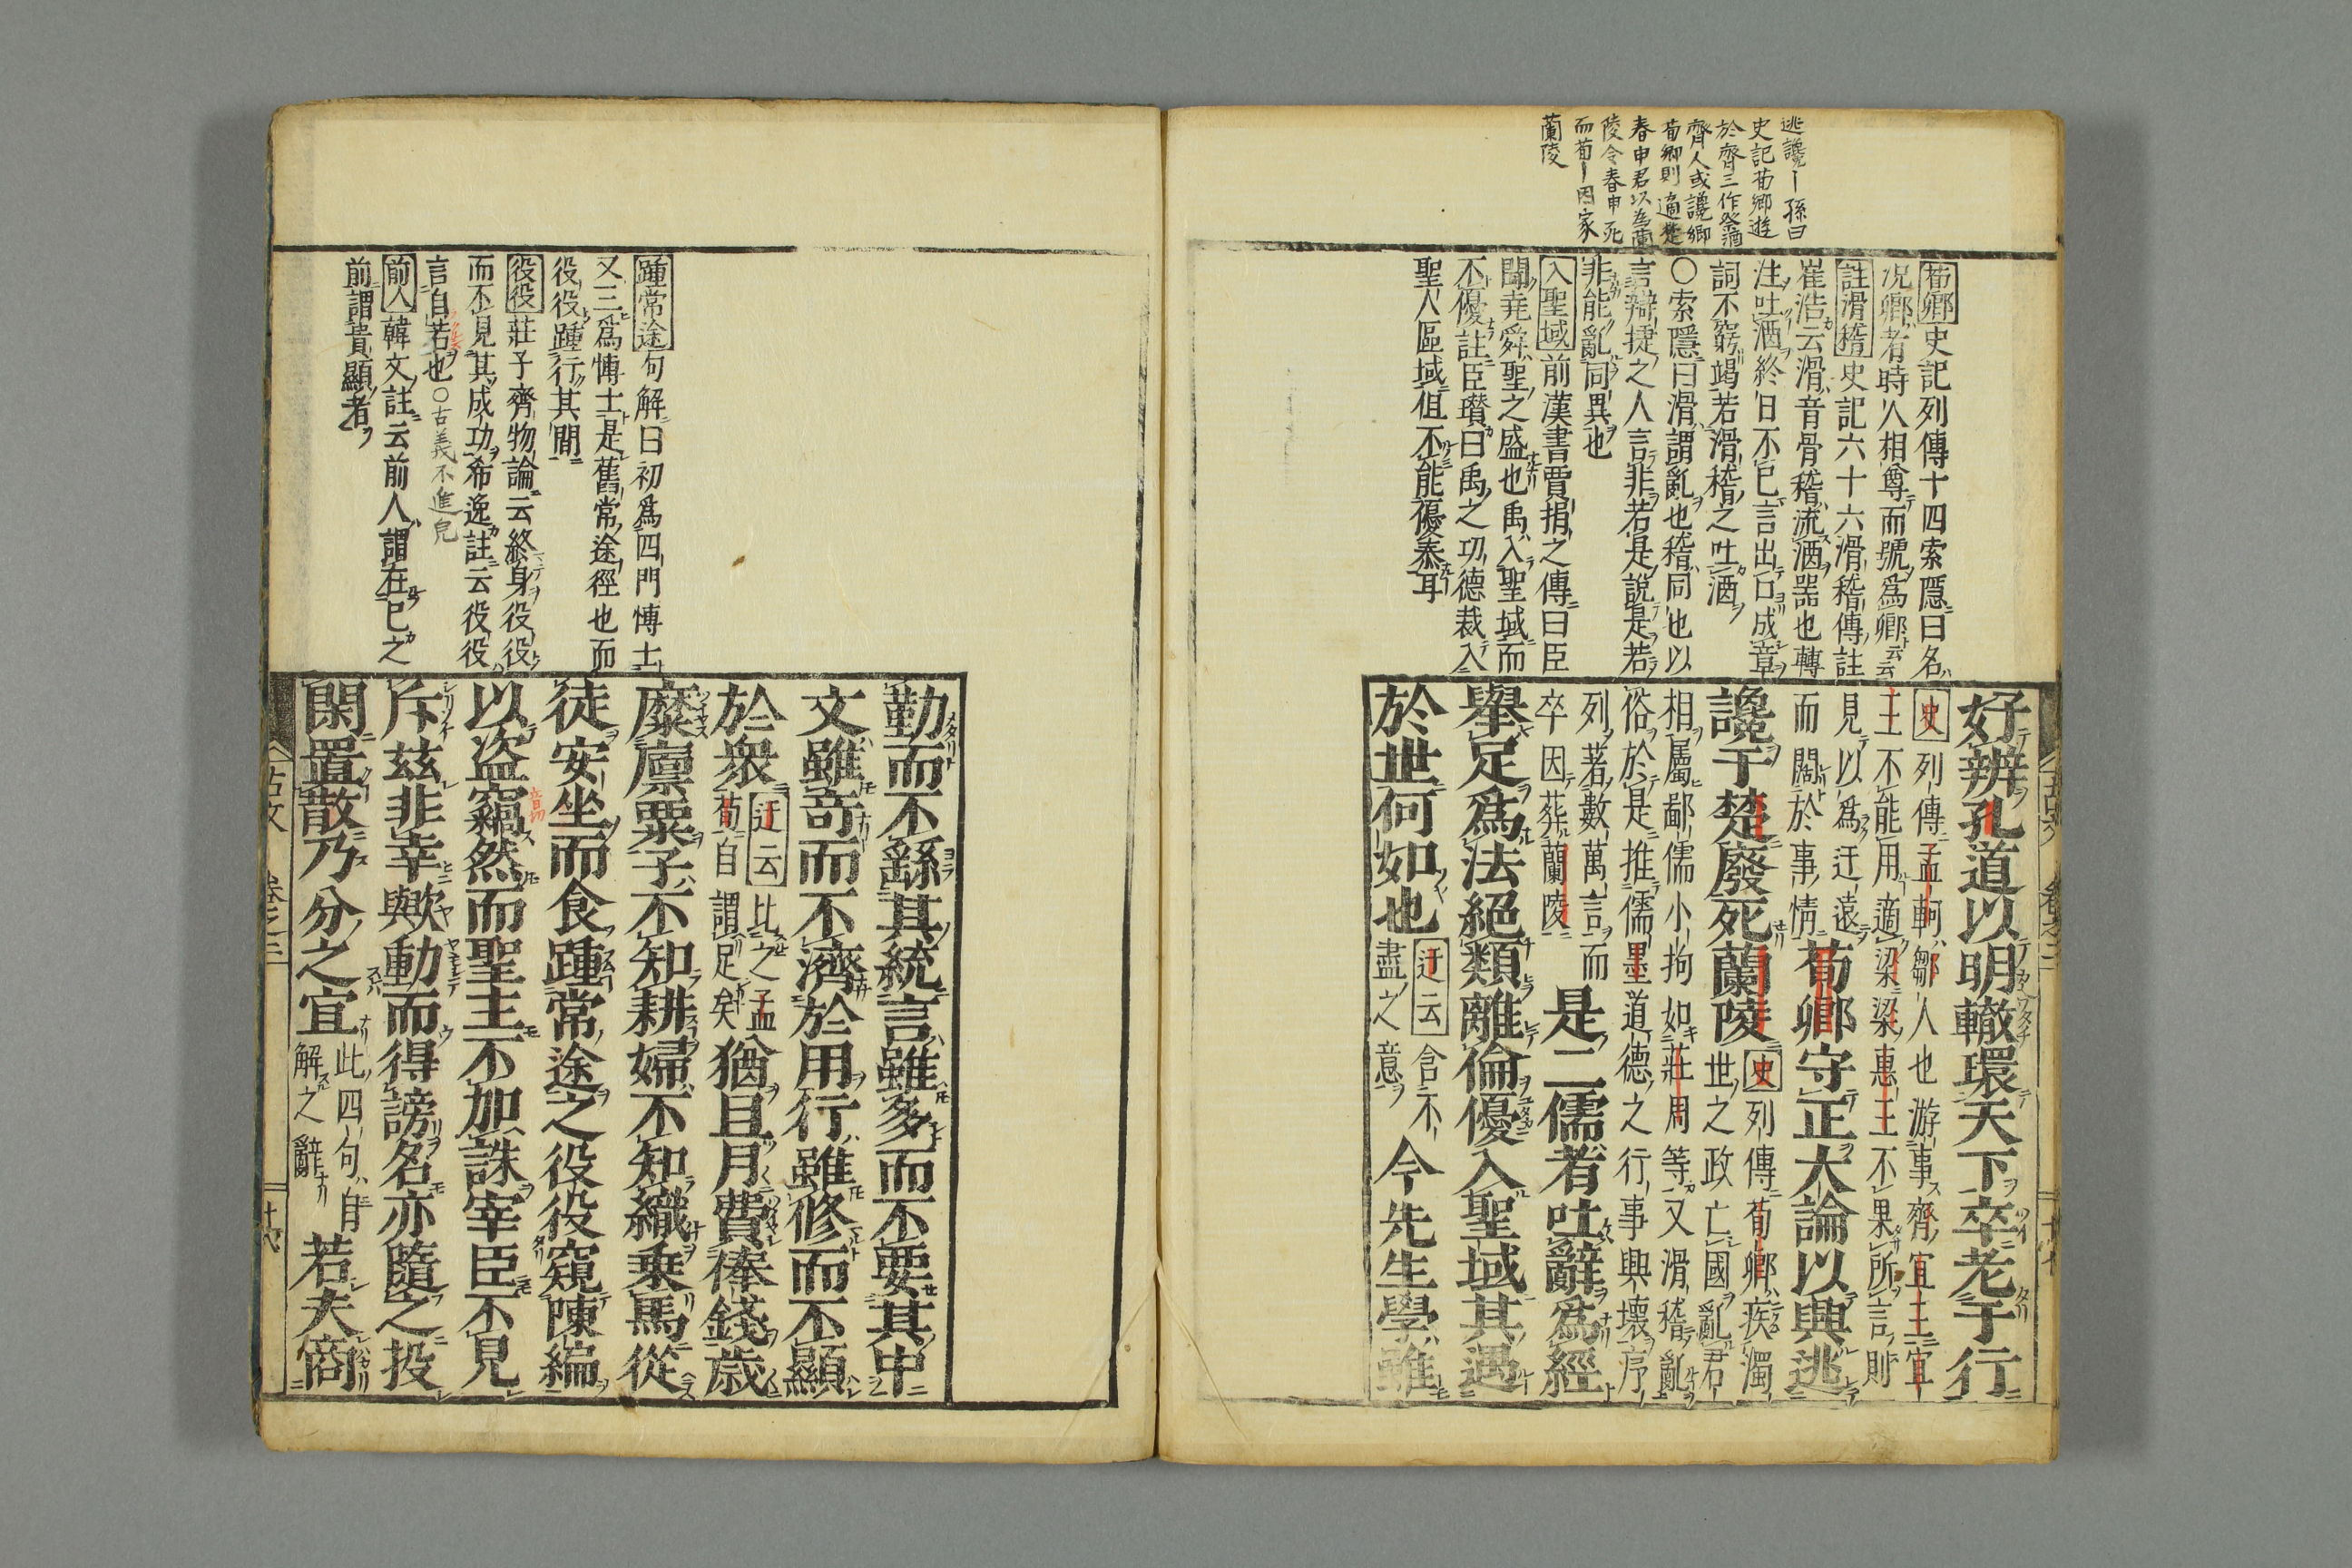 逃讒ー孫曰
史記荀卿遊
於齊三作祭酒
齊人或讒卿
荀卿則適楚
春申君以為蘭
陵令春申死
而荀ー因家
蘭陵
荀卿史記列傳十四索隱曰名
况卿者時人相尊而號爲卿云云
註滑稽史記六十六滑稽傳註
崔浩云滑音骨稽流酒器也轉
注吐酒終日不已言出口成章
詞不窮竭若滑稽之吐酒
○索隱曰滑謂亂也稽同也以
言辯捷之人言非若是說是若
非能亂同異也
入聖域前漢書賈捐之傳曰臣
聞堯舜聖之盛也禹入聖域而
不優註臣瓚曰禹之功德裁入
聖人區域但不能優泰耳
好辨孔道以明轍環天下卒老于行
史列傳孟軻鄒人也游事齊宣王宣
王不能用適梁梁惠王不果所言則
見以爲迂遠
而闊於事情荀卿守正大論以興逃
讒于楚廢死蘭陵史列傳荀卿疾濁
世之政亡國亂君
相屬鄙儒小拘如莊周等又滑稽亂
俗於是推儒墨道德之行事興壞序
列著數萬言而
卒因葬蘭陵是二儒者吐辭爲經
舉足爲法絕類離倫優入聖域其遇
於世何如也迂云含不
盡之意今先生學雖
踵常途句解曰初爲四門博士
又三爲博士是舊常途徑也而
役役踵行其間
役役莊子齊物論云終身役役
而不見其成功希逸註云役役
言自若也○古義不進皃
前人韓文註云前人謂在已之
前謂貴顯者
勤而不繇其統言雖多而不要其中
文雖奇而不濟於用行雖修而不顯
於衆迂云比之孟
荀自謂足矣猶且月費俸錢歲
糜廩粟子不知耕婦不知織乘馬從
徒安坐而食踵常途之役役窺陳編
以盜竊然而聖主不加誅宰臣不見
斥茲非幸歟動而得謗名亦隨之投
閑置散乃分之宜此四句自
解之辭若夫商
古文 卷之三